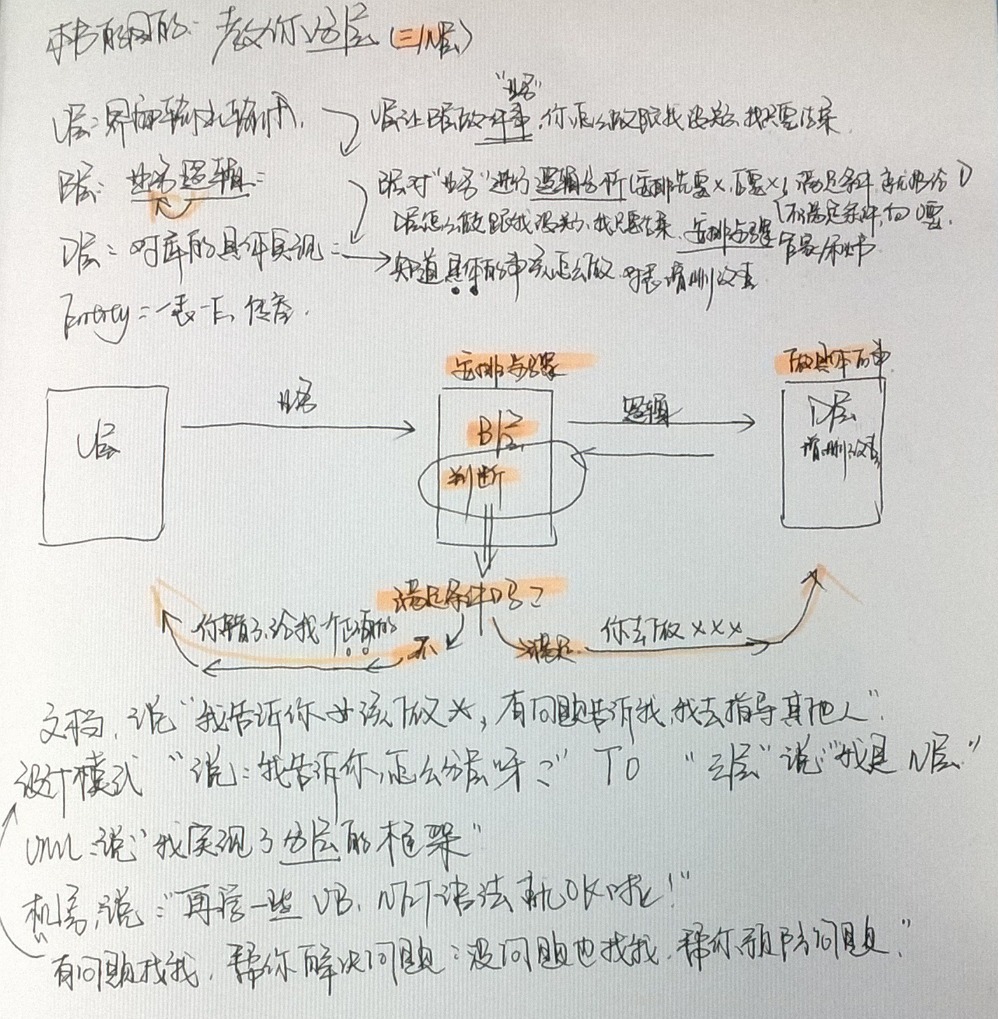 本书的目的: 教你分层 (三/N层)
U层: 界面输出输入
"业务"
U层让B层做件事, 你怎么做跟我没关系, 我只要结果
B层: 业务逻辑:
B层对"业务"进行逻辑分析 (安排先要×, 后要×; 满足条件
D层怎么做跟我没关系, 我只要结果. 安排步骤
(不满足条件, 向U要.
D层: 对库的具体实现:
知道具体的事该怎么做 对表增删改查
Entity: 一表一E, 传容.
安排步骤
做具体的事
U层
业务
B层
逻辑
D层
增删改查
判断
满足条件吗?
你错了, 给我个正确的
不
满足
你去做×××
文档, 说 "我告诉你该做×, 有问题告诉我, 我去指导其他人".
设计模式 "说: 我告诉你, 怎么分层呀?" TO "三层"说"我是N层"
UML: 说 "我实现了分层的框架"
机房, 说: "再学一些VB.NET语法就OK啦!"
有问题找我, 帮你解决问题; 没问题也找我, 帮你预防问题."